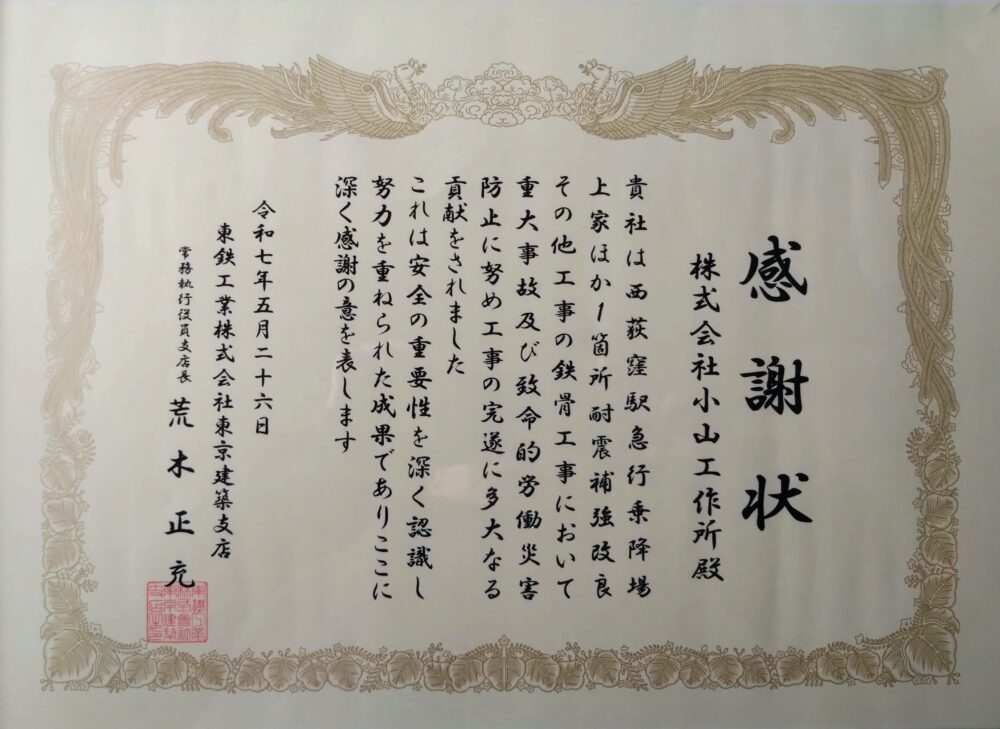 感謝状
株式会社小山工作所殿
貴社は西荻窪駅急行乗降場
上家ほか1箇所耐震補強改良
その他工事の鉄骨工事において
重大事故及び致命的労働災害
防止に努め工事の完遂に多大なる
貢献をされました
これは安全の重要性を深く認識し
努力を重ねられた成果でありここに
深く感謝の意を表します
令和七年五月二十六日
東鉄工業株式会社東京建築支店
常務執行役員支店長 荒木正充